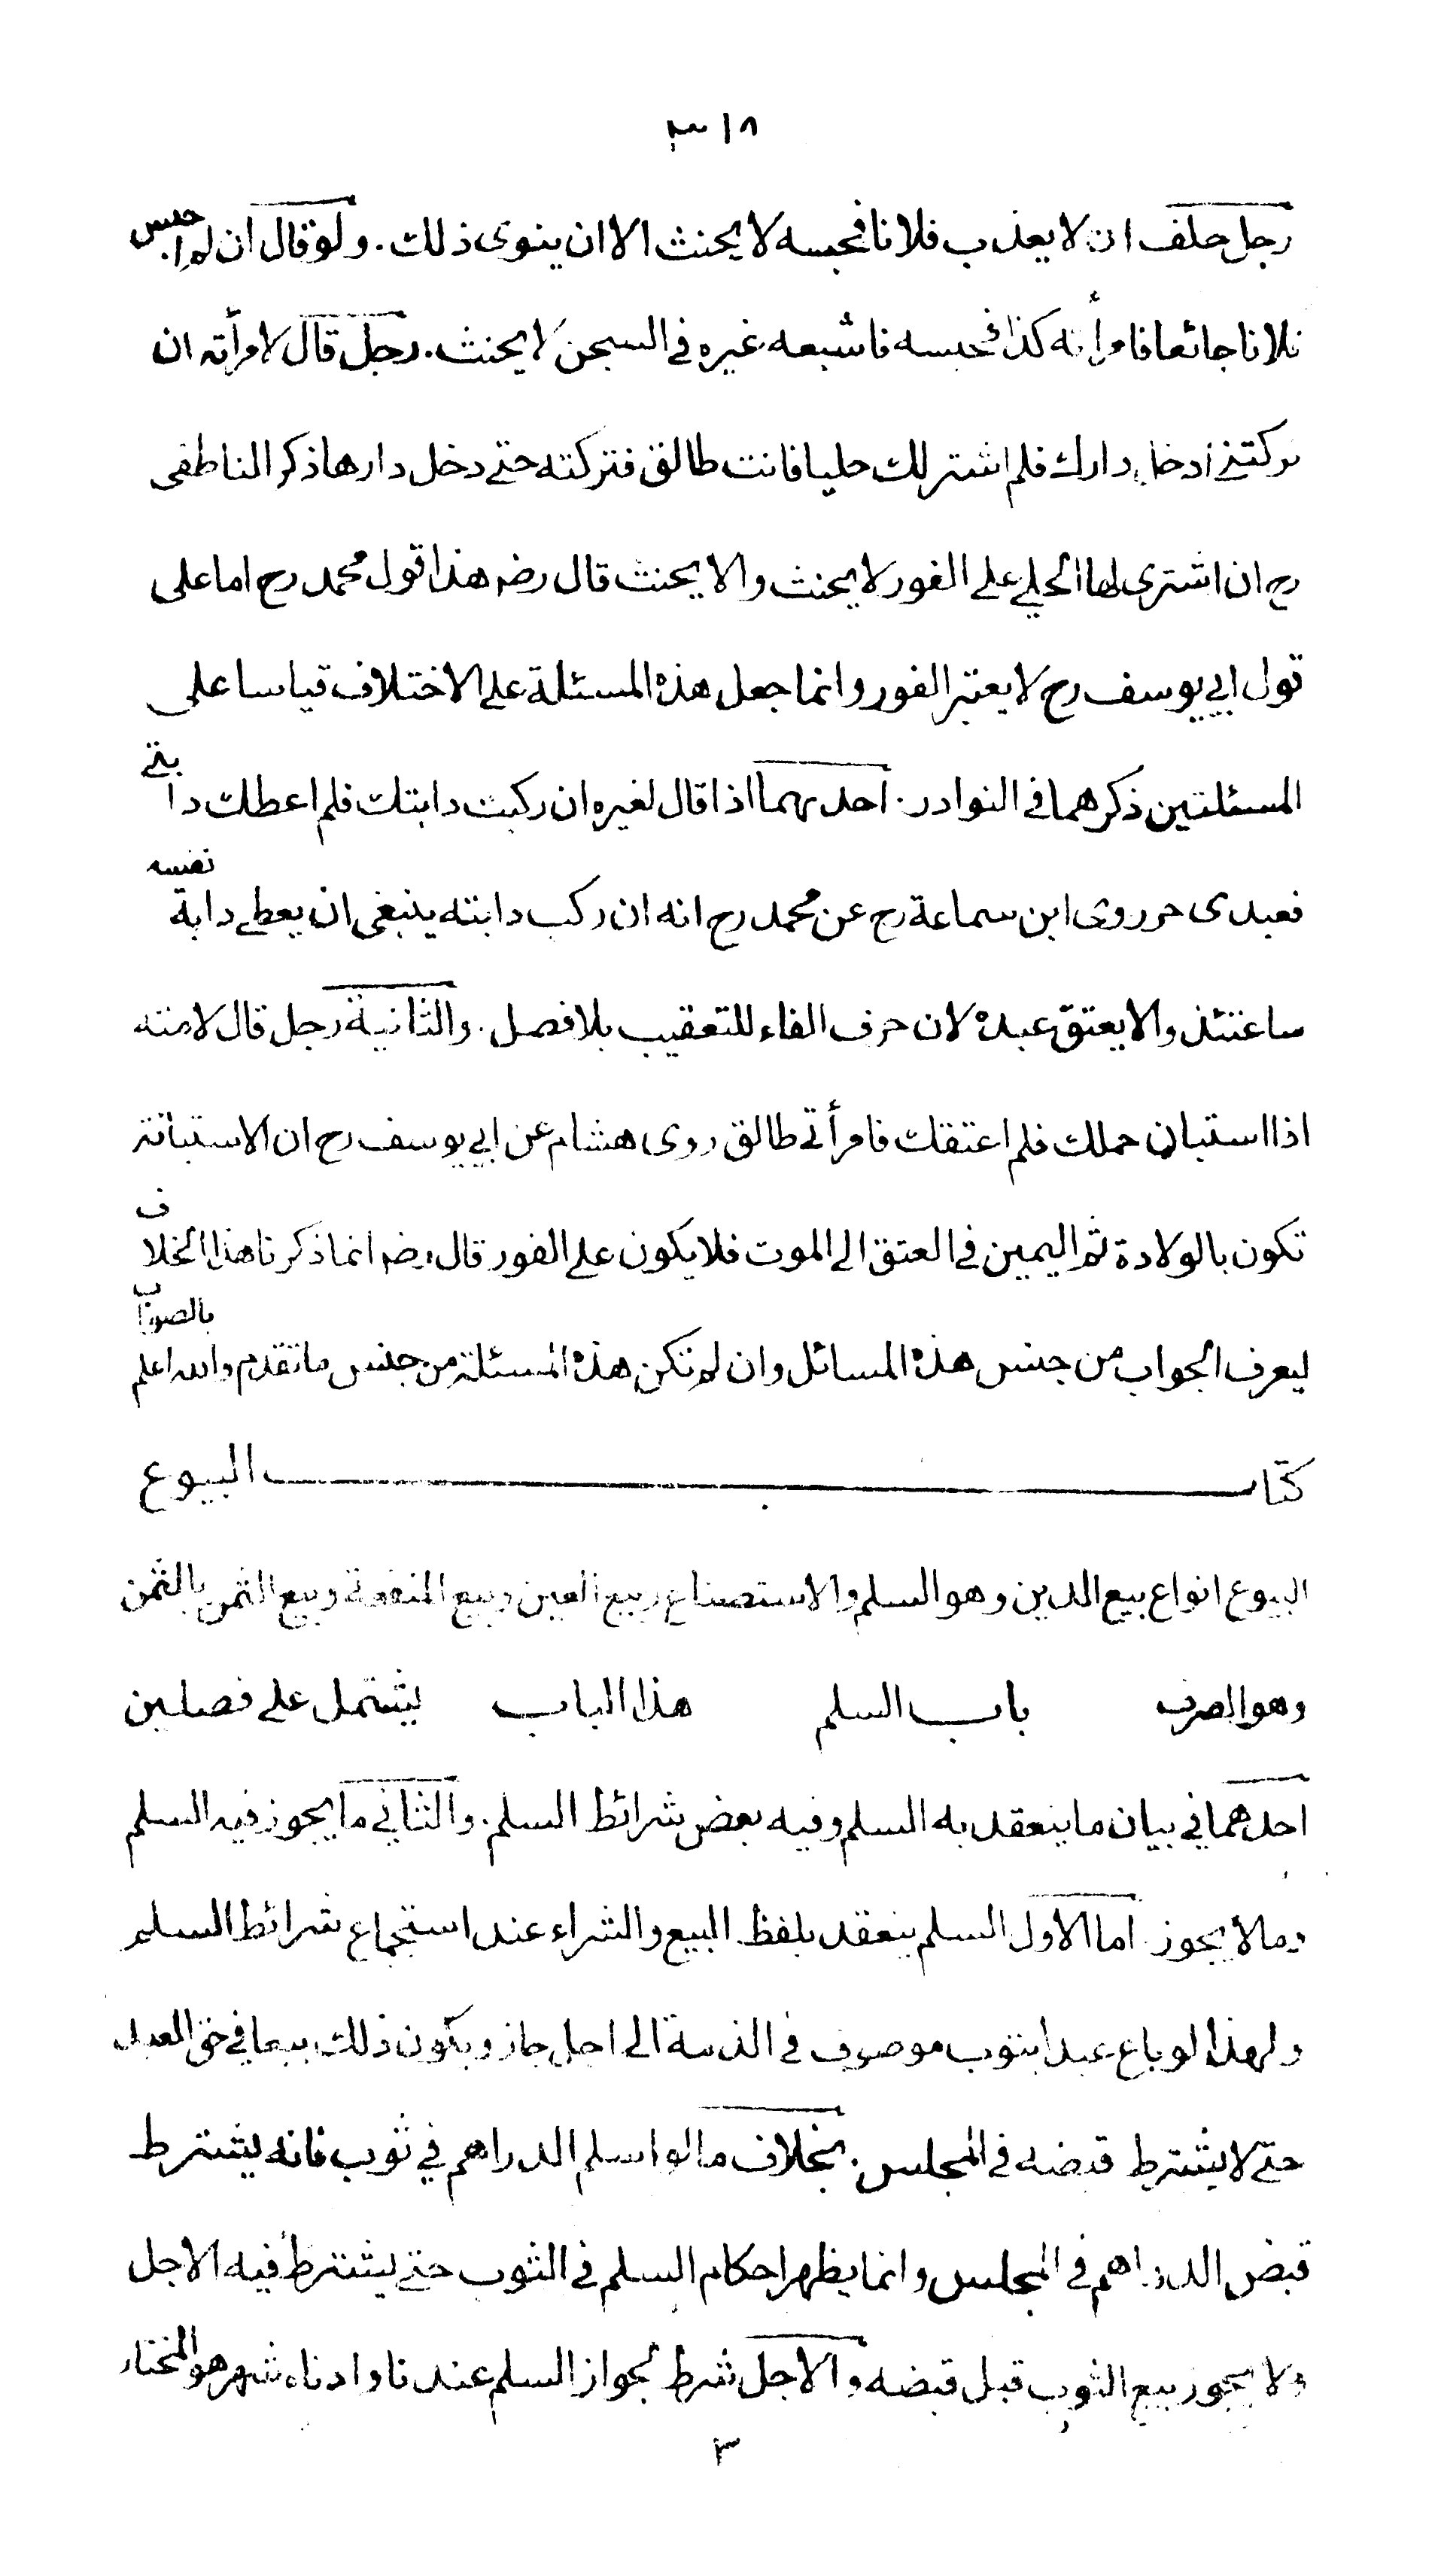 ٣١٨
رجل حلف ان لا يعذب فلانا فحبسه لا يحنث الا ان ينوى ذلك . ولو قال ان لم احبس
فلانا جائعا فامرأته كذا فحبسه فاشبعه غيره في السجن لا يحنث . رجل قال لامرأته ان
تركتنى ادخل دارك فلم اشتر لك حليا فانت طالق فتركته حتى دخل دارها ذكر الناطفى
رح ان اشترى لها الحلي على الفور لا يحنث والا يحنث قال رضه هذا قول محمد رح اما على
قول ابي يوسف رح لا يعتبر الفور وانما جعل هذه المسئلة على الاختلاف قياسا على
المسئلتين ذكرهما في النوادر . احدهما اذا قال لغيره ان ركبت دابتك فلم اعطك دابتى
فعبدى حر روى ابن سماعة رح عن محمد رح انه ان ركب دابته ينبغى ان يعطى دابة نفسه
ساعتئذ والا يعتق عبده لان حرف الفاء للتعقيب بلا فصل . والثانية رجل قال لامته
اذا استبان حملك فلم اعتقك فامرأتى طالق روى هشام عن ابي يوسف رح ان الاستبانة
تكون بالولادة ثم اليمين في العتق الى الموت فلا يكون على الفور قال رضه انما ذكرنا هذا الخلاف
ليعرف الجواب من جنس هذه المسائل وان لم تكن هذه المسئلة من جنس ما تقدم والله اعلم بالصواب
كتاب البيوع
البيوع انواع بيع الدين وهو السلم والاستصناع وبيع العين وبيع المنفعة وبيع الثمن بالثمن
وهو الصرف باب السلم هذا الباب يشتمل على فصلين
احدهما في بيان ما ينعقد به السلم وفيه بعض شرائط السلم . والثاني ما يجوز فيه السلم
وما لا يجوز . اما الاول السلم ينعقد بلفظ البيع والشراء عند استجماع شرائط السلم
ولهذا لو باع عبدا بثوب موصوف في الذمة الى اجل جاز ويكون ذلك بيعا في حق العبد
حتى لا يشترط قبضه في المجلس . بخلاف ما لو اسلم الدراهم في ثوب فانه يشترط
قبض الدراهم في المجلس وانما يظهر احكام السلم في الثوب حتى يشترط فيه الاجل
ولا يجوز بيع الثوب قبل قبضه والاجل شرط لجواز السلم عندنا وادناه شهر هو المختار
٣